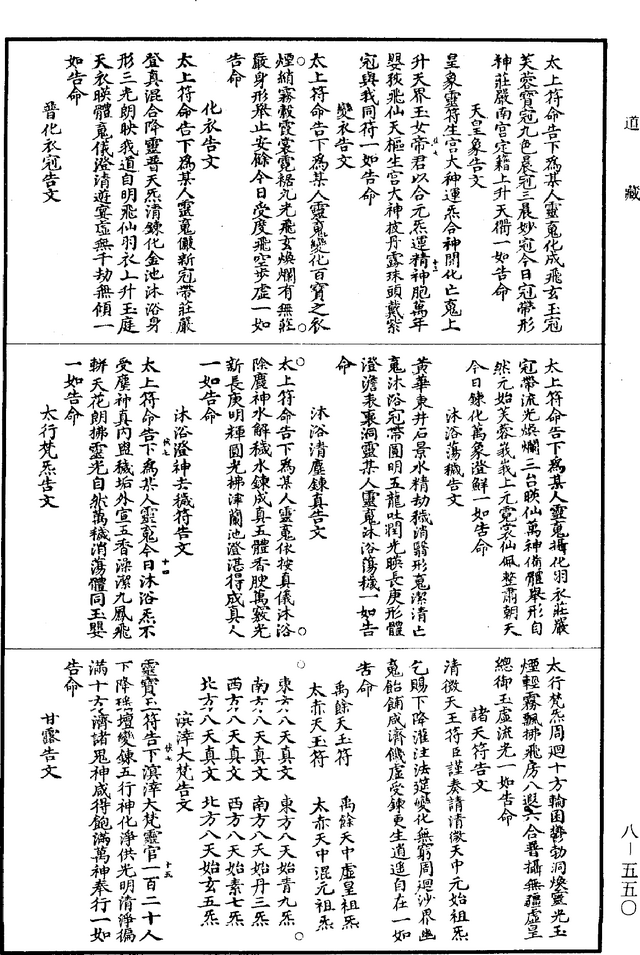 道藏
太上符命告下為某人靈䰟化成飛玄玉冠
芙蓉寶冠九色晨冠三晨妙冠今日冠帶形
神莊嚴南宫定籍上升天衢一如告命
天皇象告文
皇象靈符生宫大神運炁合神開化亡䰟上
升天界玉女帝君以合元炁運精神胞萬年
嬰孩飛仙天樞生宫大神披丹露珠頭戴紫
冠與我同符一如告命
變衣告文
太上符命告下為某人靈䰟變化百寶之衣
煙綃霧縠霞裳霓裾九光飛玄煥爛有無莊
嚴身形舉止安䋲今日受度飛空步虛一如
告命
化衣告文
太上符命告下為某人靈䰟儼新冠帶莊嚴
登真混合降靈普天炁清鍊化金池沐浴身
形三光朗映我道自明飛仙羽衣上升玉庭
天衣暎體䰟儀澄清遊宴虛無千劫無傾一
如告命
普化衣冠告文
太上符命告下為某人靈䰟攝化羽衣莊嚴
冠帶流光煥爛三台暎仙萬神侑體舉形自
然元始芙蓉峩峩上元霓裳仙佩整肅朝天
今日鍊化萬象澄鮮一如告命
沐浴蕩穢告文
黃華東井石景水精劫穢消翳形䰟潔清亡
䰟沐浴冠帶圓明五龍吐潤光暎長庚形體
澄澹表裏洞靈某人靈䰟沐浴蕩穢一如告
命
沐浴清塵鍊真告文
太上符命告下為某人靈䰟依按真儀沐浴
除塵神水解穢水鍊成真五體香腴萬竅光
新長庚明輝圓光拂津蘭池澄湛得成真人
一如告命
沐浴澄神去穢符告文
太上符命告下為某人靈䰟今日沐浴炁不
受塵神真内與穢垢外宣五香澡潔九鳳飛
軿天花朗拂靈光自然萬穢消蕩體同玉嬰
一如告命
太行梵炁告文
太行梵炁周迴十方輪囷鬱勃洞煥靈光玉
煙輕霧飄拂飛房八遐六合普攝無疆虛皇
總御玉虛流光一如告命
諸天符告文
清微天王符臣謹奏請清微天中元始祖炁
乞賜下降灌注法筵變化無窮周迴沙界幽
䰟飽餔咸濟饑虛受鍊更生逍遙自在一如
告命
禹餘天玉符 禹餘天中虛皇祖炁
太赤天玉符 太赤天中混元祖炁
東方八天真文 東方八天始青九炁
南方八天真文 南方八天始丹三炁
西方八天真文 西方八天始素七炁
北方八天真文 北方八天始玄五炁
溟涬大梵告文
靈寶玉符告下溟涬大梵靈官一百二十人
下降瑤壇變鍊五行神化淨供光明清淨徧
滿十方濟諸鬼神咸得飽滿萬神奉行一如
告命
甘露告文
八-五五〇